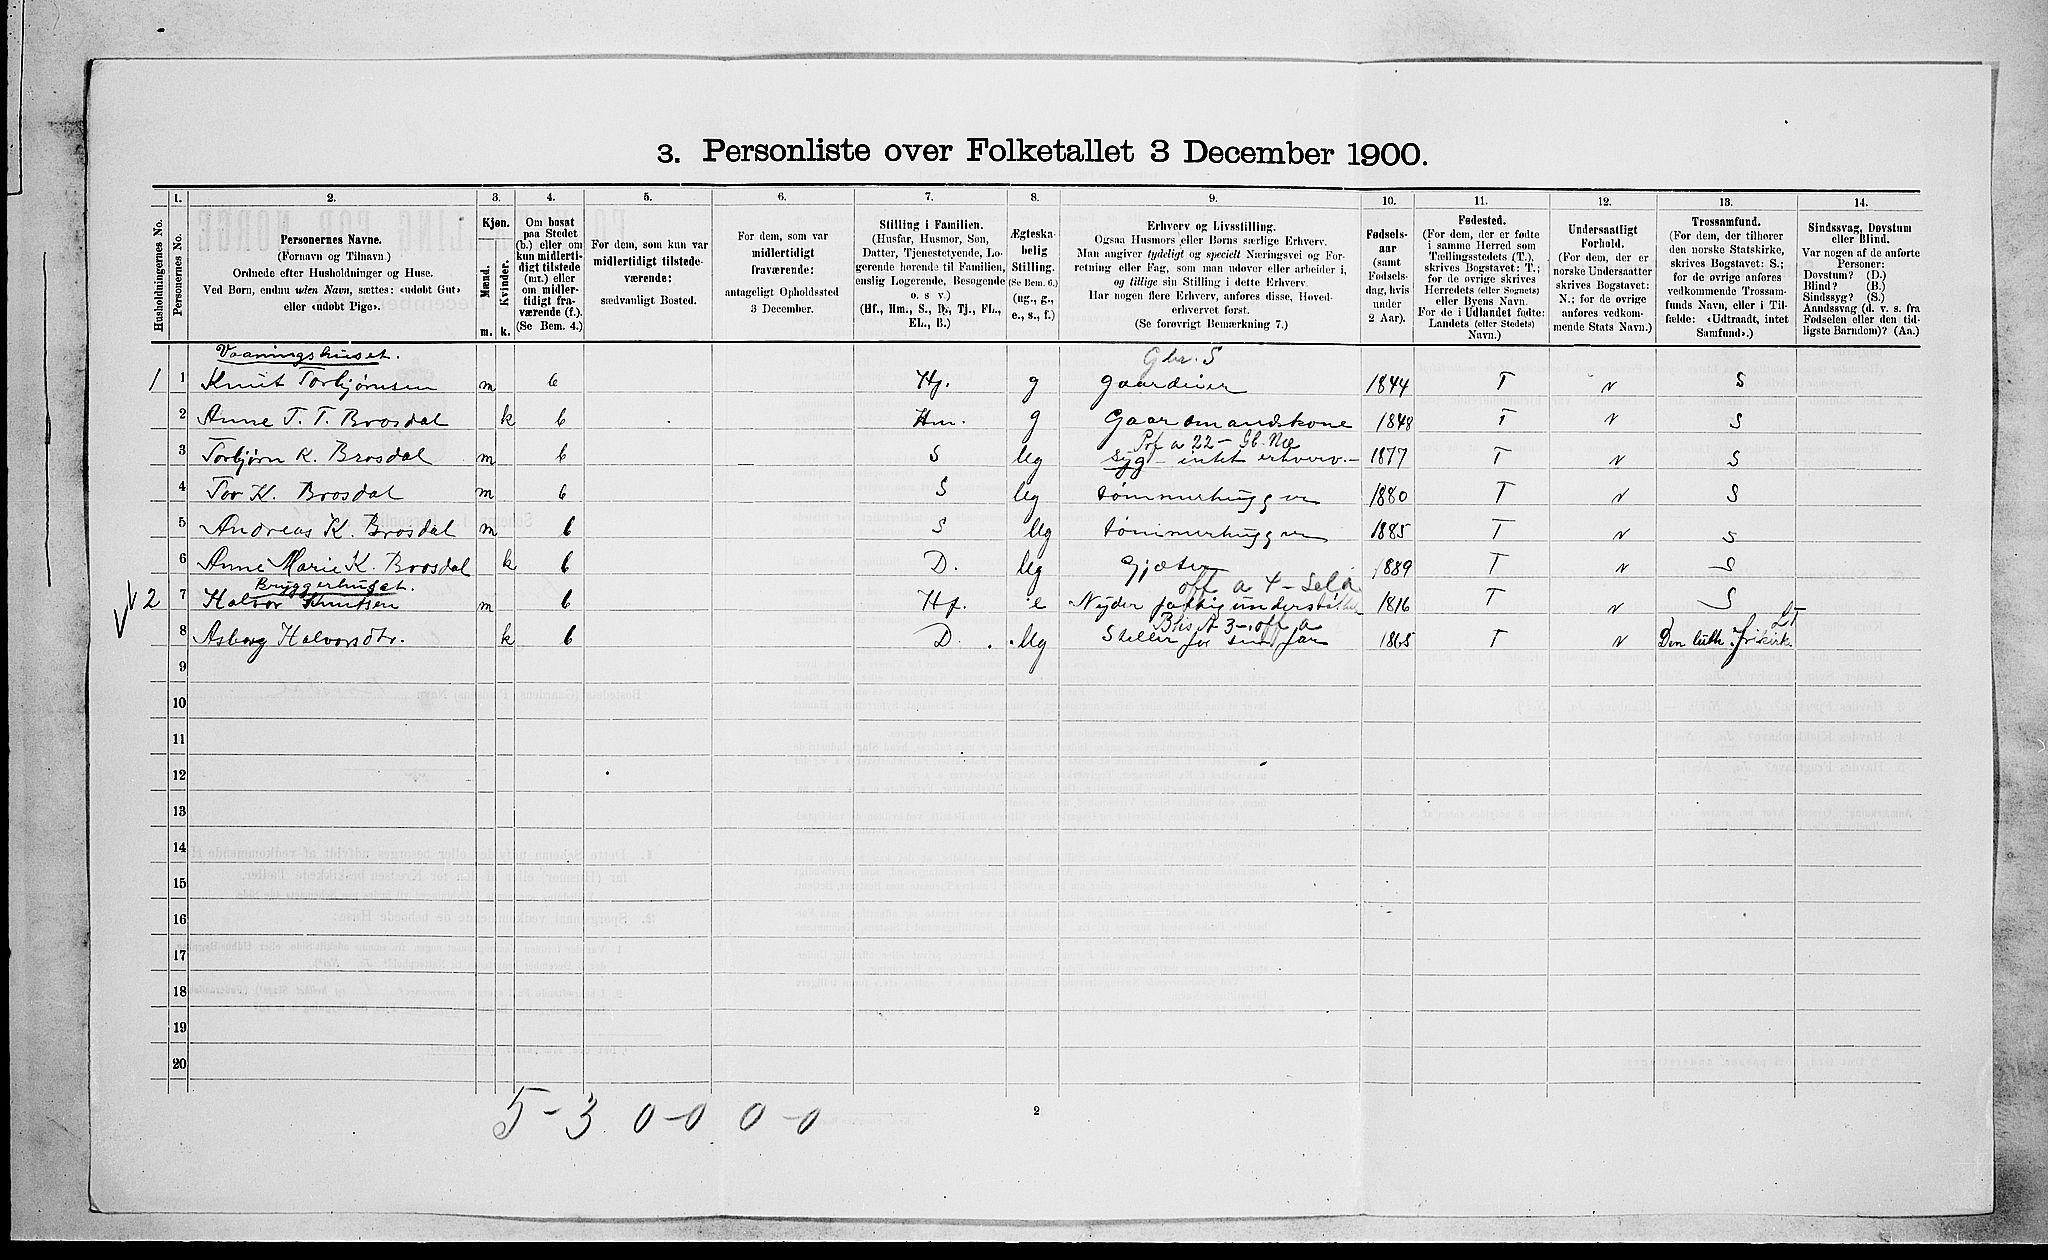 3. Personliste over Folketallet 3 December 1900.
1. 2. 3. 4. 5. 6. 7. 8. 9. 10. 11. 12. 13. 14.
Husholdningernes No.
Personernes No.
Personernes Navne.
(Fornavn og Tilnavn.)
Ordnede efter Husholdninger og Huse.
Ved Børn, endnu uden Navn, sættes: «udøbt Gut»
eller «udøbt Pige».
Kjøn.
Mænd.
Kvinder.
m. k.
Om bosat
paa Stedet
(b.) eller om
kun midlerti-
digt tilstede
(mt.) eller
om midler-
tidigt fra-
værende (f.).
(Se Bem. 4.)
For dem, som kun var
midlertidigt tilstede-
værende:
sædvanligt Bosted.
For dem, som var
midlertidigt
fraværende:
antageligt Opholdssted
3 December.
Stilling i Familien.
(Husfar, Husmor, Søn,
Datter, Tjenestetyende, Lo-
gerende hørende til Familien,
enslig Logerende, Besøgende
o. s v.)
(Hf., Hm., S., D., Tj., FL.,
EL., B.)
Ægteska-
belig
Stilling.
(Se Bem. 6.)
(ug., g.,
e., s., f.)
Erhverv og Livsstilling.
Ogsaa Husmors eller Børns særlige Erhverv.
Man angiver tydeligt og specielt Næringsvei og For-
retning eller Fag, som man udøver eller arbeider i,
og tillige sin Stilling i dette Erhverv.
Har nogen flere Erhverv, anføres disse, Hoved-
erhvervet først.
(Se forøvrigt Bemærkning 7.)
Fødsels-
aar
(samt
Fødsels-
dag, hvis
under
2 Aar).
Fødested.
(For dem, der er fødte
i samme Herred som
Tællingsstedets (T.),
skrives Bogstavet: T.;
for de øvrige skrives
Herredets (eller Sognets)
eller Byens Navn.
For de i Udlandet fødte:
Landets (eller Stedets)
Navn.)
Undersaatligt
Forhold.
(For dem, der er
norske Undersaatter
skrives Bogstavet:
N.; for de øvrige
anføres vedkom-
mende Stats Navn.)
Trossamfund.
(For dem, der tilhører
den norske Statskirke,
skrives Bogstavet: S.;
for de øvrige anføres
vedkommende Trossam-
funds Navn, eller i Til-
fælde: «Udtraadt, intet
Samfund».)
Sindssvag, Døvstum
eller Blind.
Var nogen af de anførte
Personer:
Døvstum? (D.)
Blind? (B.)
Sindssyg? (S.)
Aandssvag (d. v. s. fra
Fødselen eller den tid-
ligste Barndom)? (Aa.)
Vaaningshuset. Gbr. S
1 1 Knut Torbjørnsen m b Hf. g gaardeier 1844 T N S
2 Anne T. T. Brosdal k b Hm. g Gaardmandskone 1848 T N S
22 -
3 Torbjørn K. Brosdal m b S ug Syg - intet erhverv. - 1877 T N S
4 Tor K. Brosdal m b S ug tømmerhugger 1880 T N S
5 Andreas K. Brosdal m b S ug tømmerhugger 1885 T N S
6 Anne Marie K. Brosdal k b D. ug Gjæter 1889 T N S
Bryggerhuset.
2 7 Halvor Knutsen m b Hf. e Nyder fattigunderstøttelse 1816 T N S
8 Asborg Halvorsdtr. k b D. ug Steller for sin far 1865 T N Den luth. frikirk.
9
10
11
12
13
14
15
16
17
18
19
20
5 - 3 0 - 0 0 - 0
2